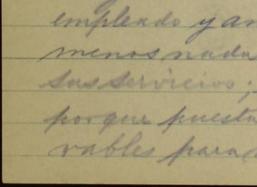 empleado y an
menos nada
sus servicios;
porque puesta
vables para